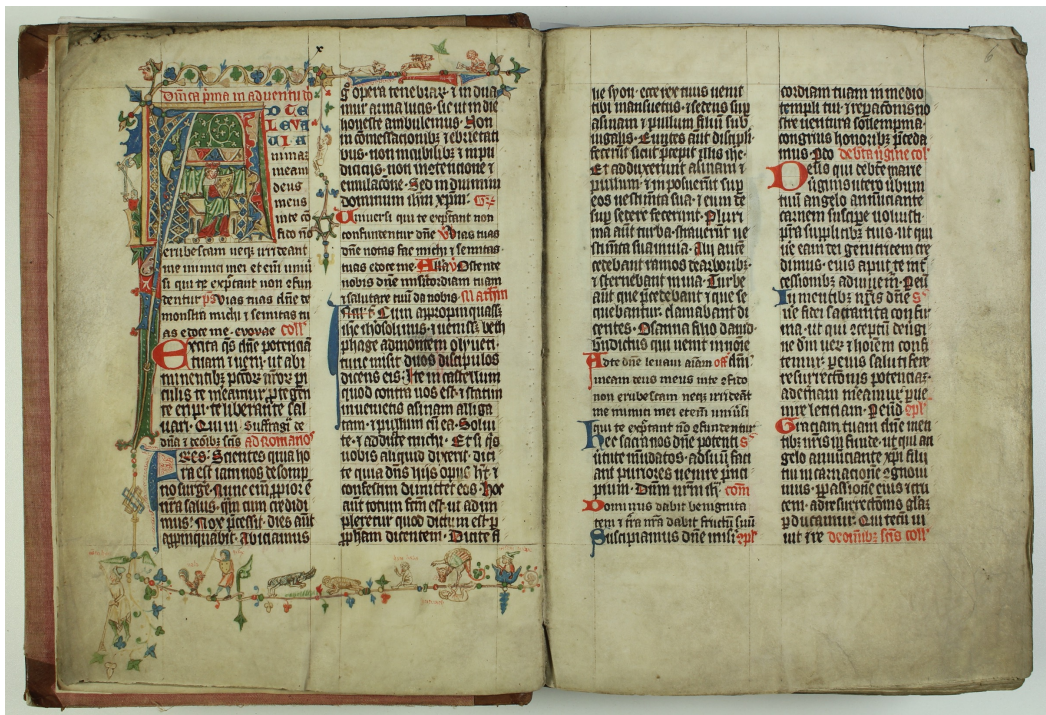 x
Dñica p̃ma in aduentu do
D TE
LEVA
VI A
nimaz
meam
deus
meus
inte cõ
fido nõ
erubescam neqz irrideant
me inimici mei et eñi uniũ
si qui te expectant non ꝯfun
dentur ps Vias tuas dñe de
monstra michi ⁊ semitas tu
as edoce me · evovae coll̃
Excita q̃s dñe potenciã
tuam ⁊ ueni · ut ab ĩ
minentibz pc̃cor̃ nr̃or̃ pi
culis te mereamur ꝓtegen
te eripi · te liberante sal
uari · Qui ui · Suffragĩ de
dña ⁊ de oĩbz sc̃is ad romanos
Fr̃es · Scientes quia ho
ra est iam nos de somp
no surge · Nunc eñi ꝓpior ẽ
nr̃a salus · qm̃ cum credidi
mus · Nox p̃cessit · dies aũt
appinquabit · Abiciamus
g̊ opera tenebrar̃ · ⁊ indua
mur arma lucis · Sic ut in die
honeste ambulemus · Non
in comessacionibz ⁊ ebrietati
bus · non in cubilibz ⁊ inpu
diciciis · non in contencione ⁊
emulacõne · Sed induimini
dominum ihm xpm · Gr̃
Uniuersi qui te exp̃tant non
confundentur dñe V̊ Vias tuas
dñe notas fac michi ⁊ semitas
tuas edoce me · Alla V̊ Ostende
nobis dñe misericordiam tuam
⁊ salutare tuũ da nobis · Matheũ
In illo t̃ · Cum appropinquass̃
ihc iherosolimis · ⁊ uenisset beth
phage ad montem oliueti ·
tunc misit duos discipulos
dicens eis · Ite in castellum
quod contra uos est · ⁊ statim
inuenietis asinam alliga
tam · ⁊ pullum cũ ea · Solui
te · ⁊ adducite michi · Et si q̃s
uobis aliquid dixerit · dici
te quia dñs hiis opus h̃t ⁊
confestim dimittet eos · Hoc
aũt totum fc̃m est · ut adim
pleretur quod dictum est ꝑ
ꝓpham dicentem · Dicite fi
6
lie syon · ecce rex tuus uenit
tibi mansuetus · ⁊ sedens sup
asinam ⁊ pullum filiũ sub
iugalis · Euntes aũt discipli
fecerũt sicut p̃cepit illis ihc ·
Et adduxerunt asinam ⁊
pullum · ⁊ inposuerũt sup
eos uestim̃ta sua · ⁊ eum de
sup sedere fecerunt · Pluri
ma aũt turba strauerũt ue
stim̃ta sua in uia · Alii autẽ
cedebant ramos de arboribz ·
⁊ sternebant in uia · Turbe
aũt que p̃cedebant ⁊ que se
quebantur · clamabant di
centes · Osanna filio dauid ·
bn̄dictus qui uenit in noĩe
Ad te dñe leuaui aĩam off̃ dñi
meam deus meus inte ꝯfido
non erubescam neqz irrideãt
me inimici mei etenim uniũsi
qui te exp̃tant nõ ꝯfundentur
Hec sacra nos dñe potenti s̃
uirtute mũdatos · ad suũ faci
ant puriores uenire p̃nci
pium · Dñum nr̃m ih̃ · com̃
Dominus dabit benignita
tem ⁊ t̃ra nr̃a dabit fructũ suũ
Suscipiamus dñe misi 9pl̃
cordiam tuam in medio
templi tui · ⁊ repacõnis no
stre uentura sollempnia ·
congruis honoribz p̃ceda
mus · Pdo de bt̃a ũgine col̃
Deus qui de bt̃e marie
ũginis utero ũbum
tuũ angelo annũciante
carnem suscipe uoluisti ·
p̃sta supplicibz tuis · ut qui
ue eam dei genitricem cre
dimus · eius aput te int̃
cessionibz adiuuem̃ · Peũ
In mentibz nr̃is dñe s̃
ue fidei sacramta confir
ma · ut qui ꝯceptũ de ũgi
ne dñ̃ uer̃ ⁊ hoĩem confi
temur · ꝑ eius salutifere
resurrectionis potenciaz ·
ad et̃nam mereamur ꝑue
nire leticiam · Peũd 9pl̃
Graciam tuam dñe men
tibz nr̃is infunde · ut qui an
gelo annũciante xp̃i filii
tui incarnacionẽ ꝯgnoui
mus · ꝑ passionẽ eius ⁊ cru
cem · ad resurrectõnis glaz
ꝑducamur · Qui tecũ ui
uit ⁊ re de om̃ibz sc̃is coll̃